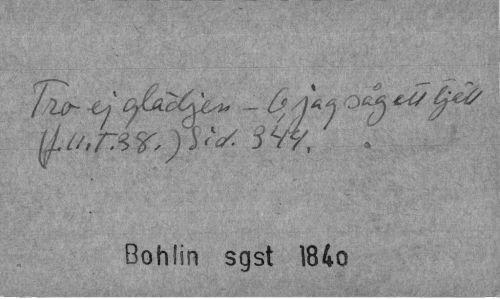 Tro ej glädjen – O, jag såg ett tjäll
(f.u.T.38.) Sid. 344.
Bohlin sgst 1840